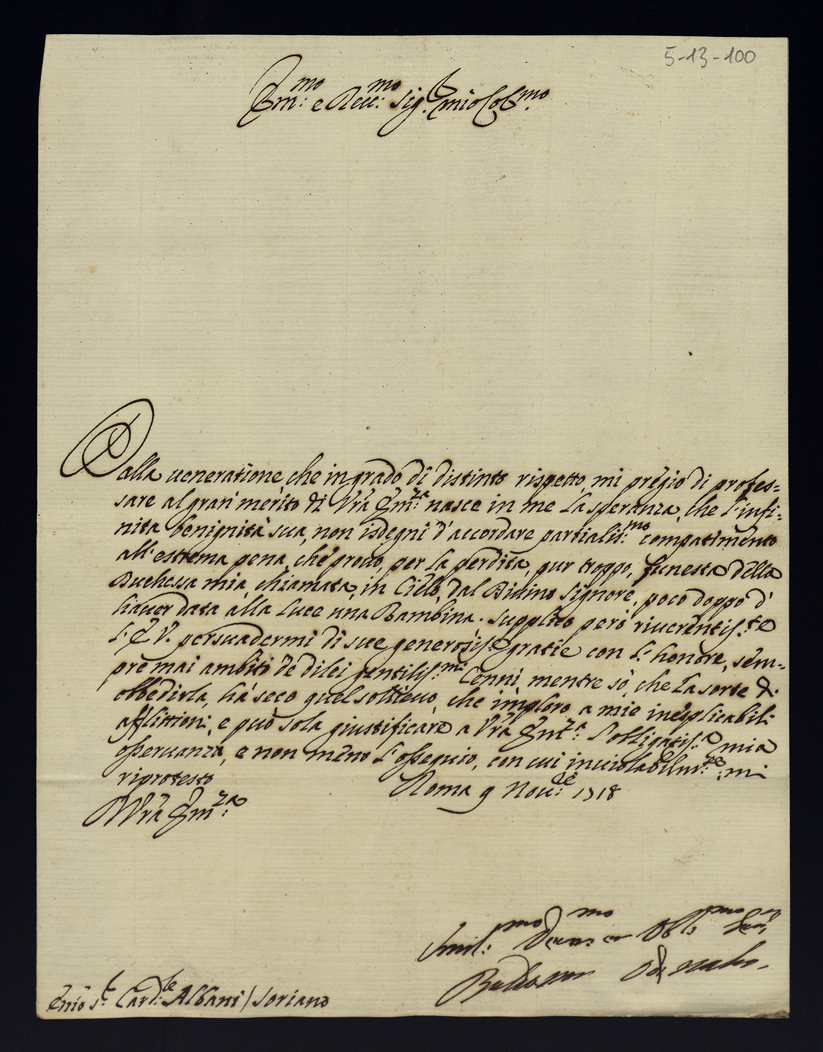 5-13-100
Em:mo e Rev:mo Sig:r mio Col:mo
Dalla veneratione, che in grado di distinto rispetto mi prégio di profes=
sare al gran merito di Vrã Em:za nasce in me la speranza, che l'infi-
nita benignità sua, non isdegni d'accordare partialis:mo compatimento
all'estrema pena, che prouo, per la perdita, pur troppo, funesta della
Duchessa mia, chiamata, in Cielo, dal Diuino Signore, poco doppo d'
hauer data alla luce una Bambina. Supplico però riuerentis:te
l'E.V. persuadermi di sue generosis:e gratie con l'honore, sem-
pre mai ambito de di lei gentilis:mi Cenni, mentre sò, che la sorte di
obbedirla, hà seco quel sollieuo, che imploro a mie inesplicabili
afflittioni, e può sola giustificare a Vrã Em:za l'obligatis:a mia
osseruanza, e non meno l'ossequio, con cui inuiolabilm:te mi
riprotesto
Roma 9 Nou:e 1718
Di Vrã Em:za
Em̃o S:r Card:le Albani / Soriano
Umil:mo Deu:mo Obl:mo Ser: